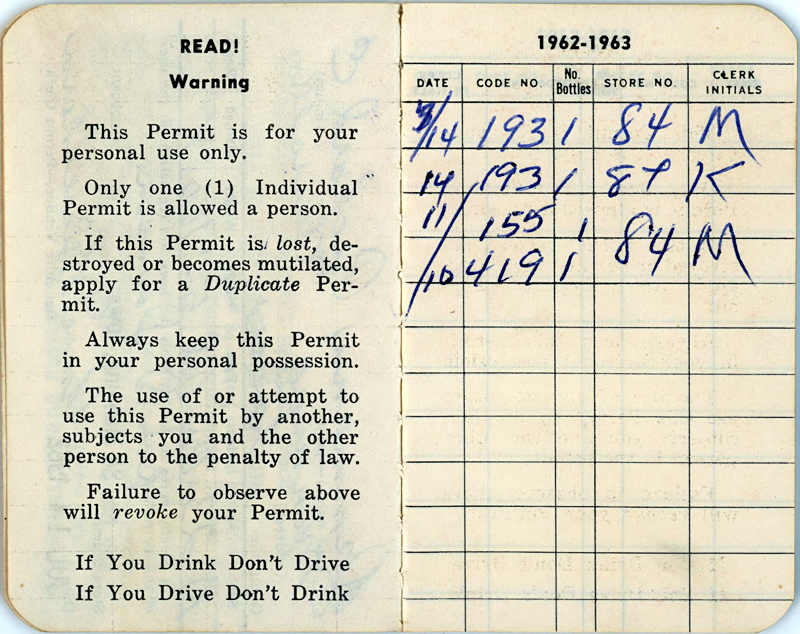 READ!
Warning
This Permit is for your
personal use only.
Only one (1) Individual
Permit is allowed a person.
If this Permit is lost, de-
stroyed or becomes mutilated,
apply for a Duplicate Per-
mit.
Always keep this Permit
in your personal possession.
The use of or attempt to
use this Permit by another,
subjects you and the other
person to the penalty of law.
Failure to observe above
will revoke your Permit.
If You Drink Don't Drive
If You Drive Don't Drink
1962-1963
DATE CODE NO. No. Bottles STORE NO. CLERK INITIALS
3/14 193 1 84 M
14 193 1 84 K
11/ 155 1
/10 419 1 84 M